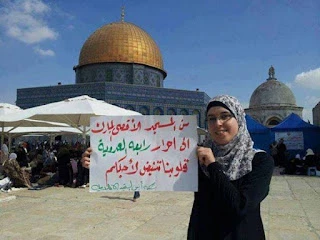 من المسجد الأقصى المبارك
الى احرار رابعه العدوية
قلوبنا تنبض لأجلكم